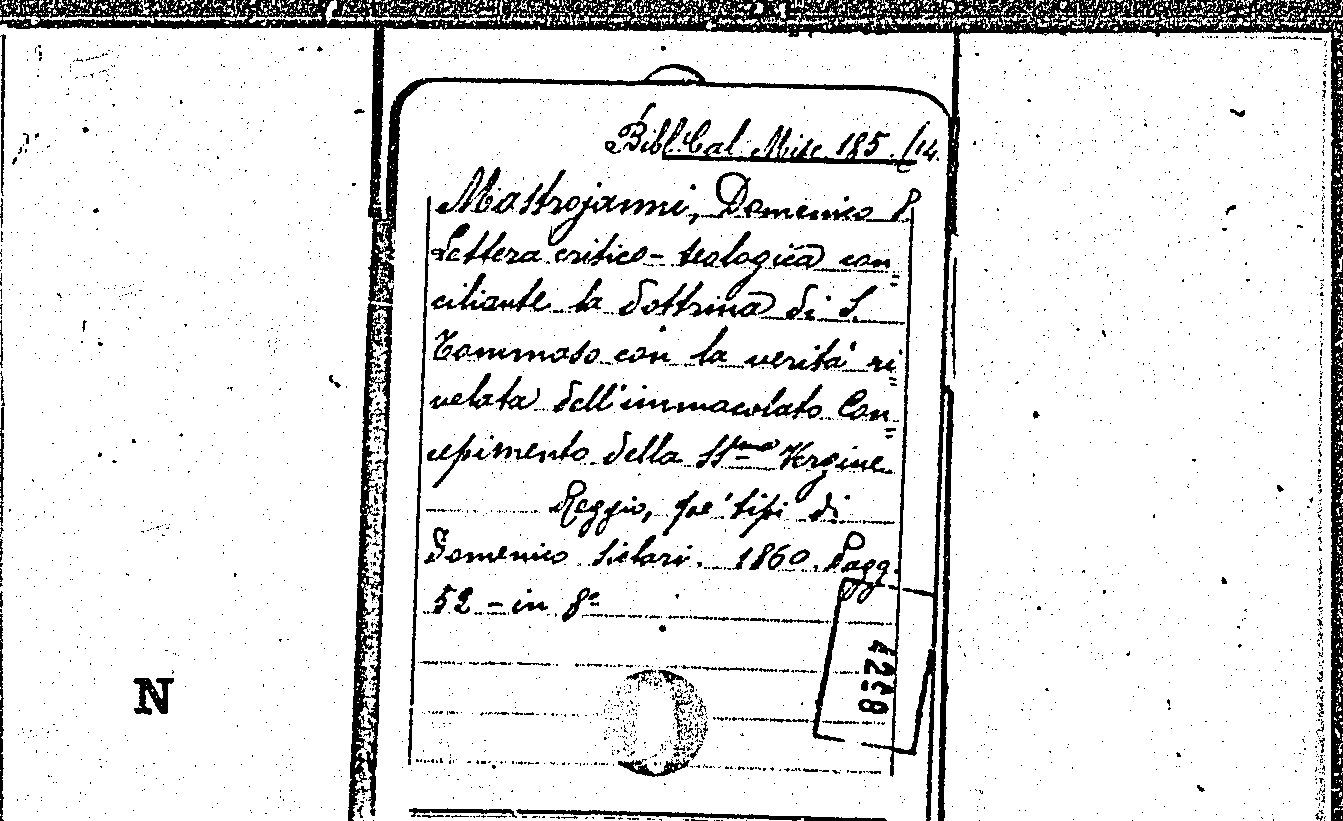 Bibl. Cal. Misc. 185. /14.
Mastrojanni, Domenico P.
Lettera critico-teologica con=
ciliante la dottrina di S.
Tommaso con la verità ri=
velata dell'immacolato Con=
cepimento della SS.ma Vergine
Reggio, pe' tipi di
Domenico Siclari. 1860. Pagg.
52 - in 8º
4298
N